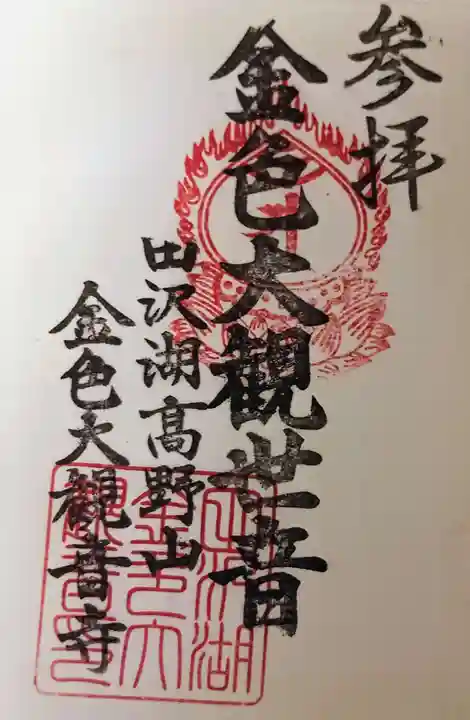 参拝
金色大観世音
田沢湖高野山
金色大観音寺